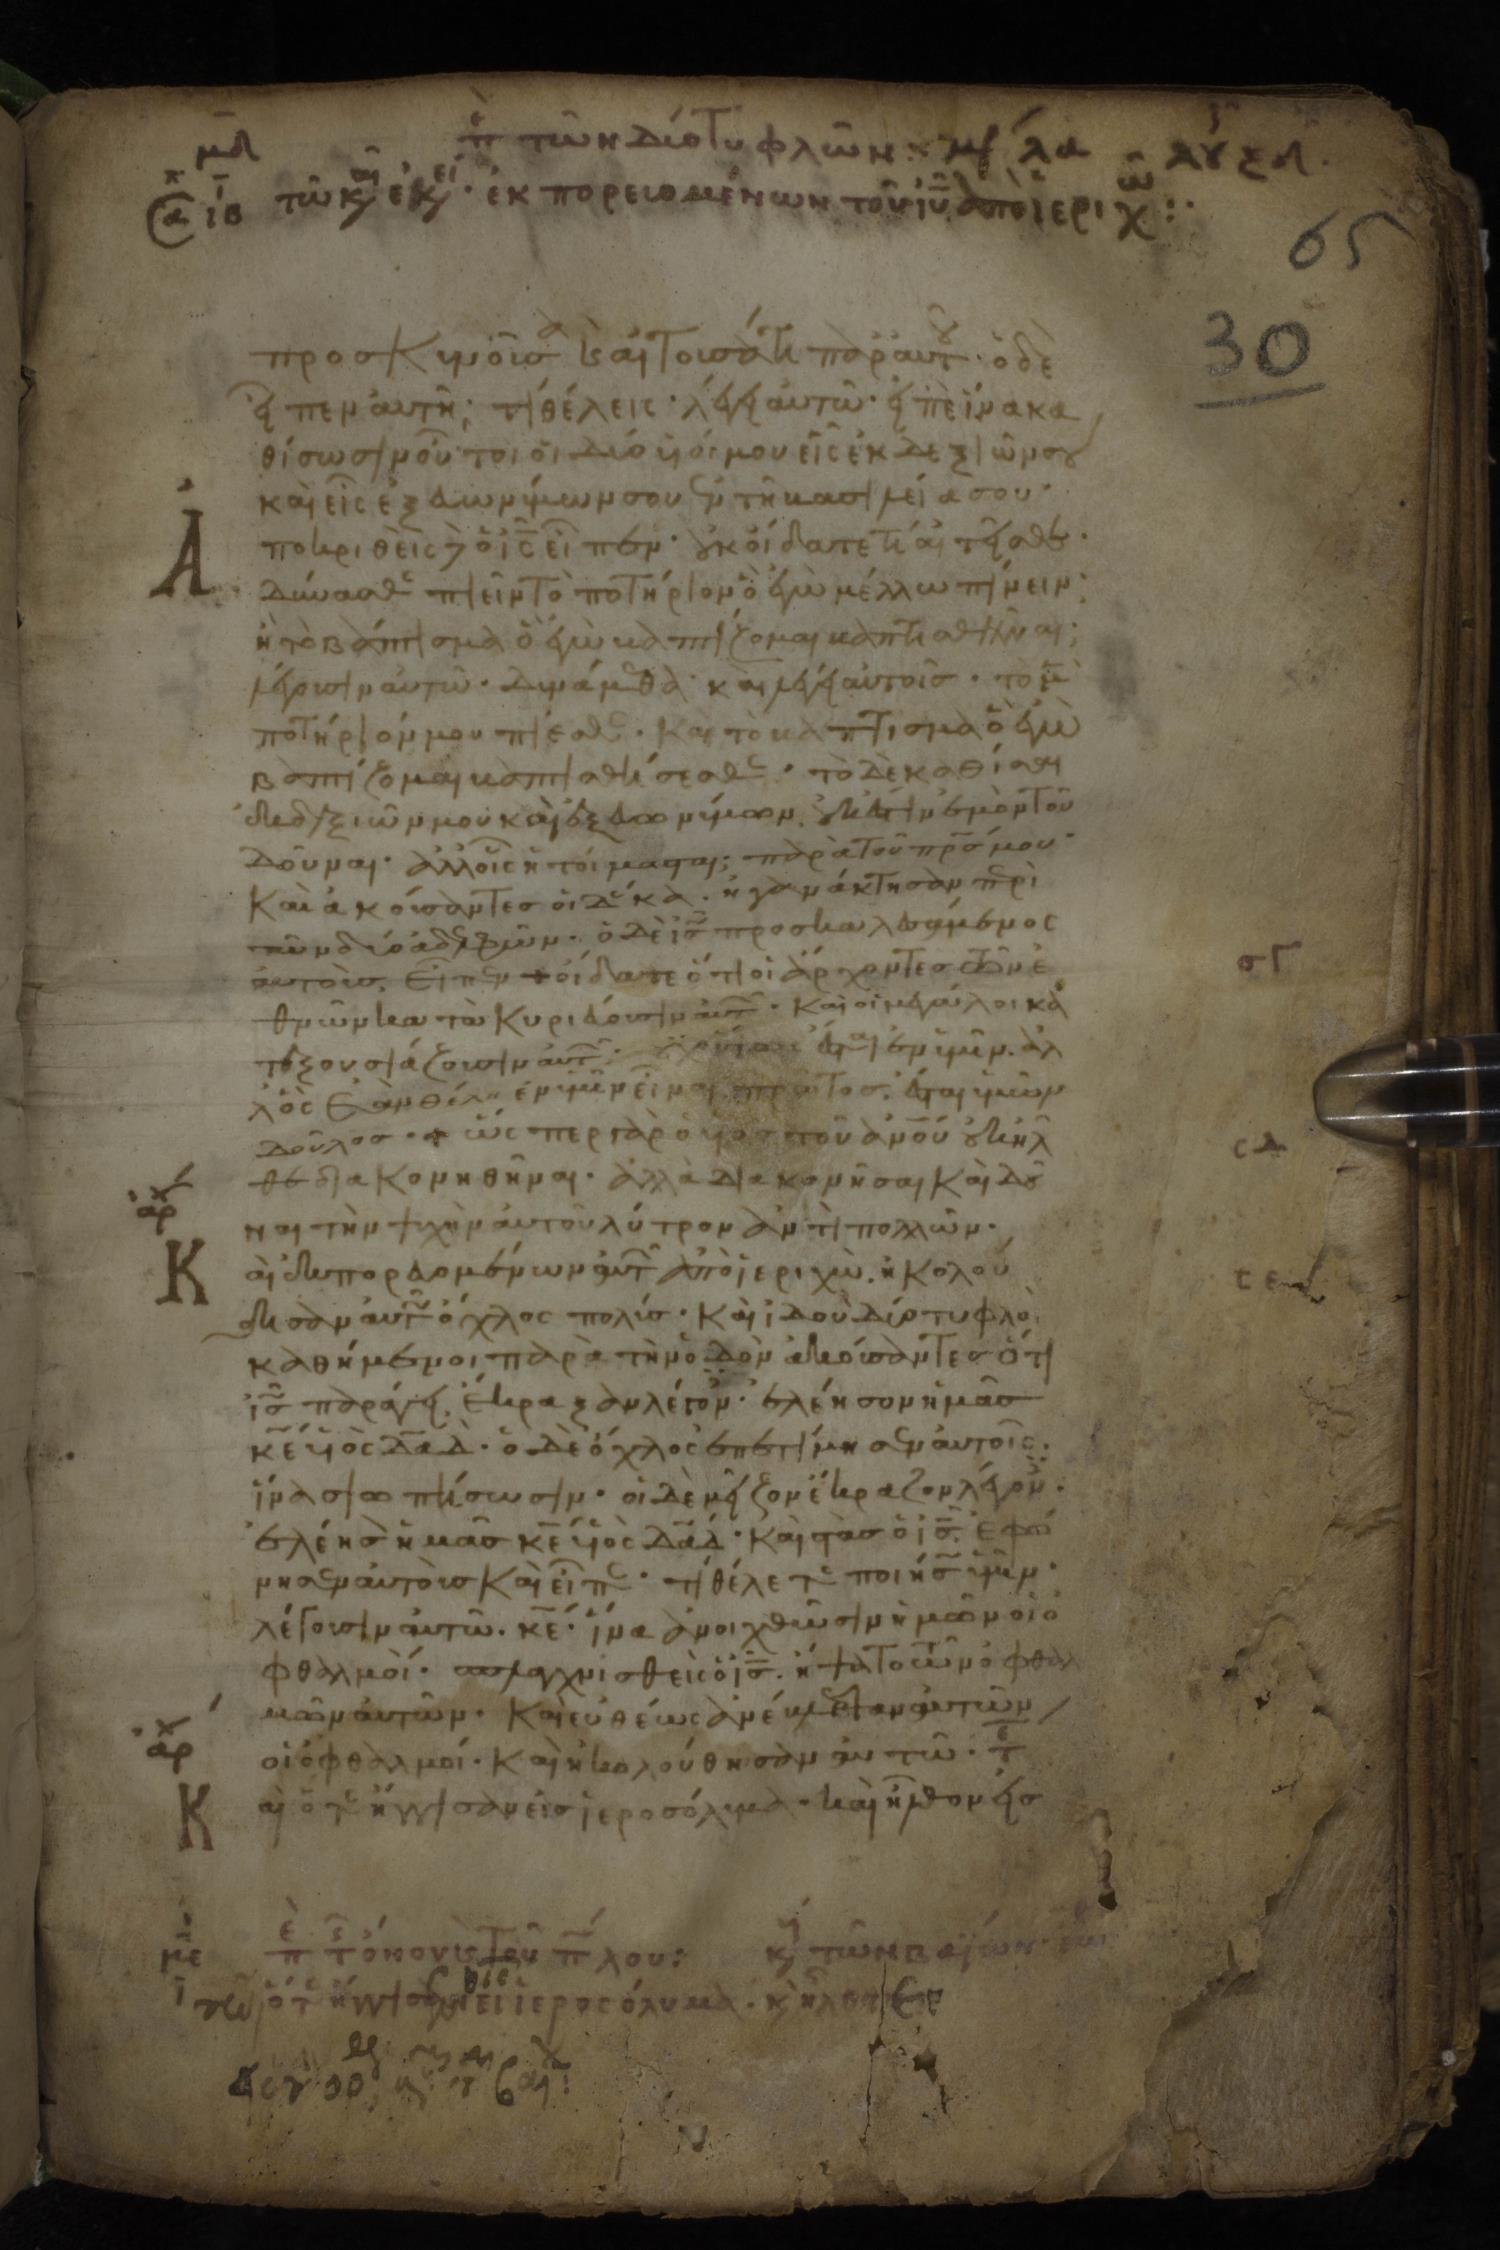 μδ π τῶν δύο τυφλῶν· μρ λα λγ ξδ
τῶ κ ἐκ· ἐκπορευομένων τοῦ ἰῦ ἀπὸ ἱεριχ:·
65
30
προσκυνοῦσα καὶ αἰτοῦσά τι παρ' αὐτοῦ· ὁ δὲ
εἶπεν αὐτῆ; τί θέλεις· λέγει αὐτῶ· εἰπὲ ἵνα κα
θίσωσιν οὗτοι οἱ δύο υἱοί μου εἷς ἐκ δεξιῶν σου
καὶ εἷς ἐξ εὐωνύμων σου ἐν τῆ βασιλεία σου·
Ἀ
ποκριθεὶς δὲ ὁ ις εἶπεν· οὐκ οἴδατε τί αἰτεῖσθε·
δύνασθε πιεῖν τὸ ποτήριον ὃ ἐγὼ μέλλω πίνειν;
ἢ τὸ βάπτισμα ὃ ἐγὼ βαπτίζομαι βαπτισθῆναι;
λέγουσιν αὐτῶ· δυνάμεθα· καὶ λέγει αὐτοῖς· τὸ μὲν
ποτήριόν μου πίεσθε· καὶ τὸ βάπτισμα ὃ ἐγὼ
βαπτίζομαι βαπτισθήσεσθε· τὸ δὲ καθίσαι
ἐκ δεξιῶν μου καὶ ἐξ εὐωνύμων, οὐκ ἔστιν ἐμὸν τοῦ
δοῦναι· ἀλλ' οἷς ἡτοίμασται; παρὰ τοῦ πρς μου·
Καὶ ἀκούσαντες οἱ δέκα· ἠγανάκτησαν περὶ
τῶν δύο ἀδελφῶν· ὁ δὲ ις προσκαλεσάμενος
αὐτοὺς, εἶπεν οἴδατε ὅτι οἱ ἄρχοντες τῶν ἐ
σγ
θνῶν κατακυριεύουσιν αὐτῶν· καὶ οἱ μεγάλοι κα
τεξουσιάζουσιν αὐτῶν· ἔσται ἐν ὑμῖν. ἀλ
λ' ὃς ἐὰν θέλη ἐν ὑμῖν εἶναι πρῶτος, ἔσται ὑμῶν
δοῦλος· ὥσπερ γὰρ ὁ υἱὸς τοῦ ἀνου οὐκ ἦλ
σδ
θε διακονηθῆναι· ἀλλὰ διακονῆσαι καὶ δοῦ
ἀρχ
ναι τὴν ψυχὴν αὐτοῦ λύτρον ἀντὶ πολλῶν·
Κ
αὶ ἐκπορευομένων αὐτῶν ἀπὸ ἱεριχὼ. ἠκολού
σε
θησαν αὐτῶ ὄχλος πολύς· καὶ ἰδοὺ δύο τυφλοὶ
καθήμενοι παρὰ τὴν ὁδὸν ἀκούσαντες ὅτι
ις παράγει, ἔκραξαν λέγοντες· ἐλέησον ἡμᾶς
κε υἱὸς δαδ· ὁ δὲ ὄχλος ἐπετίμησεν αὐτοῖς·
ἵνα σιωπήσωσιν· οἱ δὲ μεῖζον ἔκραζον λέγοντες·
ἐλέησον ἡμᾶς κε υἱὸς δαδ· καὶ στὰς ὁ ις. ἐφώ
νησεν αὐτοὺς καὶ εἶπε· τί θέλετε ποιήσω ὑμῖν·
λέγουσιν αὐτῶ· κε· ἵνα ἀνοιχθῶσιν ἡμῶν οἱ ὀ
φθαλμοί· σπλαγχνισθεὶς ὁ ις. ἥψατο τῶν ὀφθαλ
μῶν αὐτῶν· καὶ εὐθέως ἀνέβλεψαν αὐτῶν
ἀρχ
οἱ ὀφθαλμοί· καὶ ἠκολούθησαν αὐτῶ· τε
Κ
αὶ ὅτε ἤγγισαν εἰς ἱεροσόλυμα· καὶ ἦλθον εἰς
με π τ ὄνου καὶ τοῦ πλου: κ τῶν βαΐων
ὅτ ἤγγισεν ὁ ις εἰ ἱεροσόλυμα·